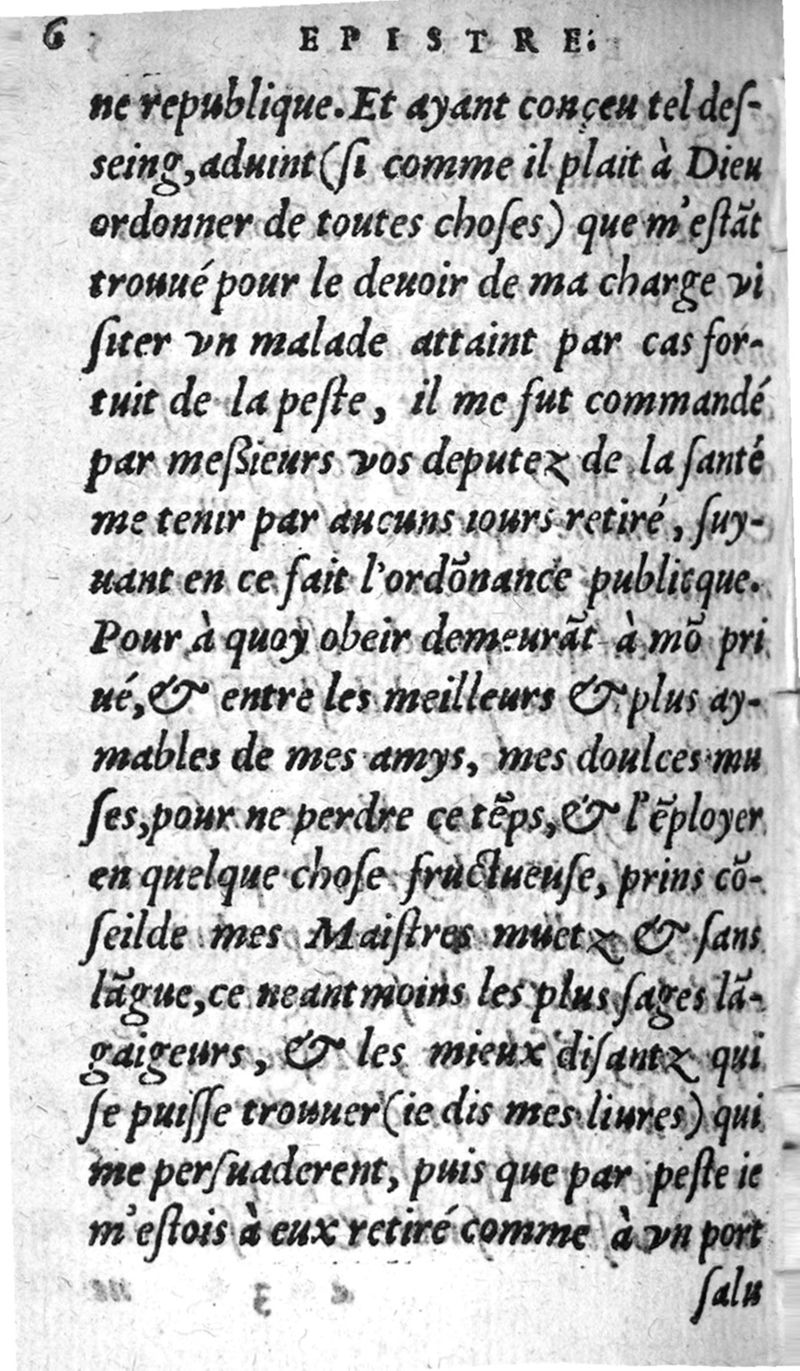 6 EPISTRE.
ne republique. Et ayant conçeu tel deſ-
seing, aduint (ſi comme il plait à Dieu
ordonner de toutes choſes) que m'eſtãt
trouué pour le deuoir de ma charge vi
ſiter vn malade attaint par cas for-
tuit de la peſte, il me fut commandé
par meßieurs vos deputez de la ſanté
me tenir par aucuns iours retiré, ſuy-
uant en ce fait l'ordõnance publicque.
Pour à quoy obeir demeurãt à mõ pri
ué, & entre les meilleurs & plus ay-
mables de mes amys, mes doulces mu
ſes, pour ne perdre ce tẽps, & l'ẽployer
en quelque choſe fructueuſe, prins cõ-
ſeil de mes Maiſtres muetz & ſans
lãgue, ce neantmoins les plus ſages lã-
gaigeurs, & les mieux diſantz qui
ſe puiſſe trouuer (ie dis mes liures) qui
me perſuaderent, puis que par peſte ie
m'eſtois à eux retiré comme à vn port
ſalu